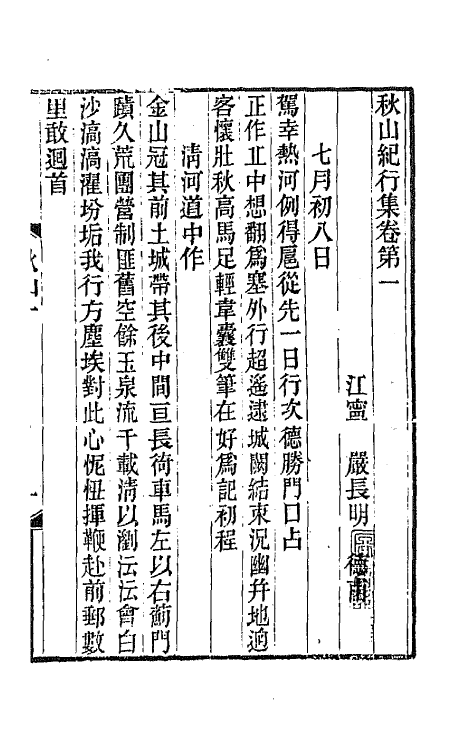 秋山紀行集卷第一
江寧　嚴長明　德甫
七月初八日
駕幸熱河例得扈從先一日行次德勝門口占
正作丘中想翻爲塞外行超遙逮城闕結束況幽幷地迥
客懷壯秋高馬足輕韋囊雙筆在好爲記初程
淸河道中作
金山冠其前土城帶其後中間亘長衖車馬左以右薊門
蹟久荒團營制匪舊空餘玉泉流千載淸以瀏沄沄會白
沙滈滈濯坋垢我行方塵埃對此心怩忸揮鞭赴前郵數
里敢迴首
秋山一
一